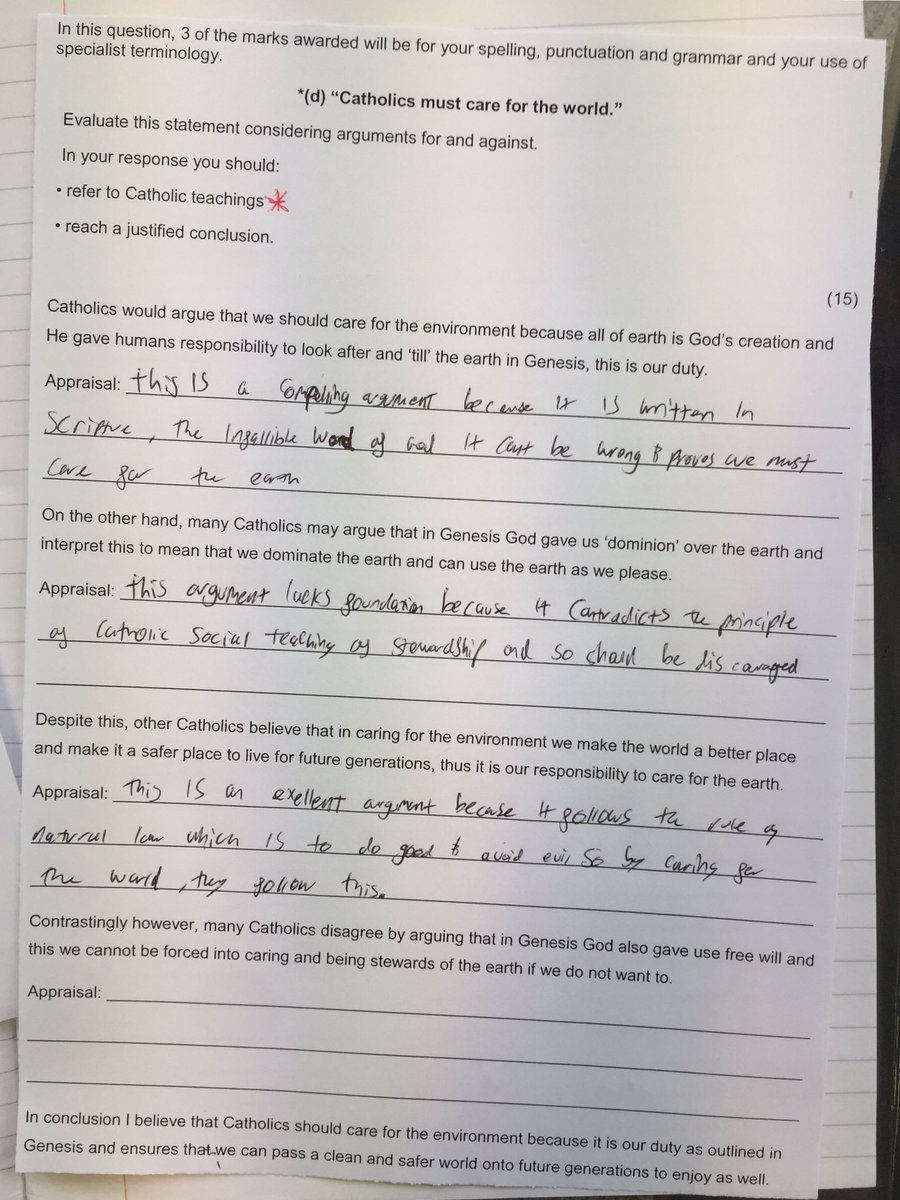 In this question, 3 of the marks awarded will be for your spelling, punctuation and grammar and your use of
specialist terminology.
*(d) “Catholics must care for the world.”
Evaluate this statement considering arguments for and against.
In your response you should:
• refer to Catholic teachings
• reach a justified conclusion.
(15)
Catholics would argue that we should care for the environment because all of earth is God's creation and
He gave humans responsibility to look after and 'till' the earth in Genesis, this is our duty.
Appraisal: this is a compelling argument because it is written in
Scriptue, the Infallible word of God it cant be wrong & proves we must
care for the earth
On the other hand, many Catholics may argue that in Genesis God gave us 'dominion' over the earth and
interpret this to mean that we dominate the earth and can use the earth as we please.
Appraisal: this argument lacks foundation because it contradicts the principle
of Catholic Social teaching of stewardship and so should be discouraged
Despite this, other Catholics believe that in caring for the environment we make the world a better place
and make it a safer place to live for future generations, thus it is our responsibility to care for the earth.
Appraisal: This is an exellent argument because it follows the rule of
natural law which is to do good & avoid evil so by caring for
the world, they follow this.
Contrastingly however, many Catholics disagree by arguing that in Genesis God also gave use free will and
this we cannot be forced into caring and being stewards of the earth if we do not want to.
Appraisal:
In conclusion I believe that Catholics should care for the environment because it is our duty as outlined in
Genesis and ensures that we can pass a clean and safer world onto future generations to enjoy as well.